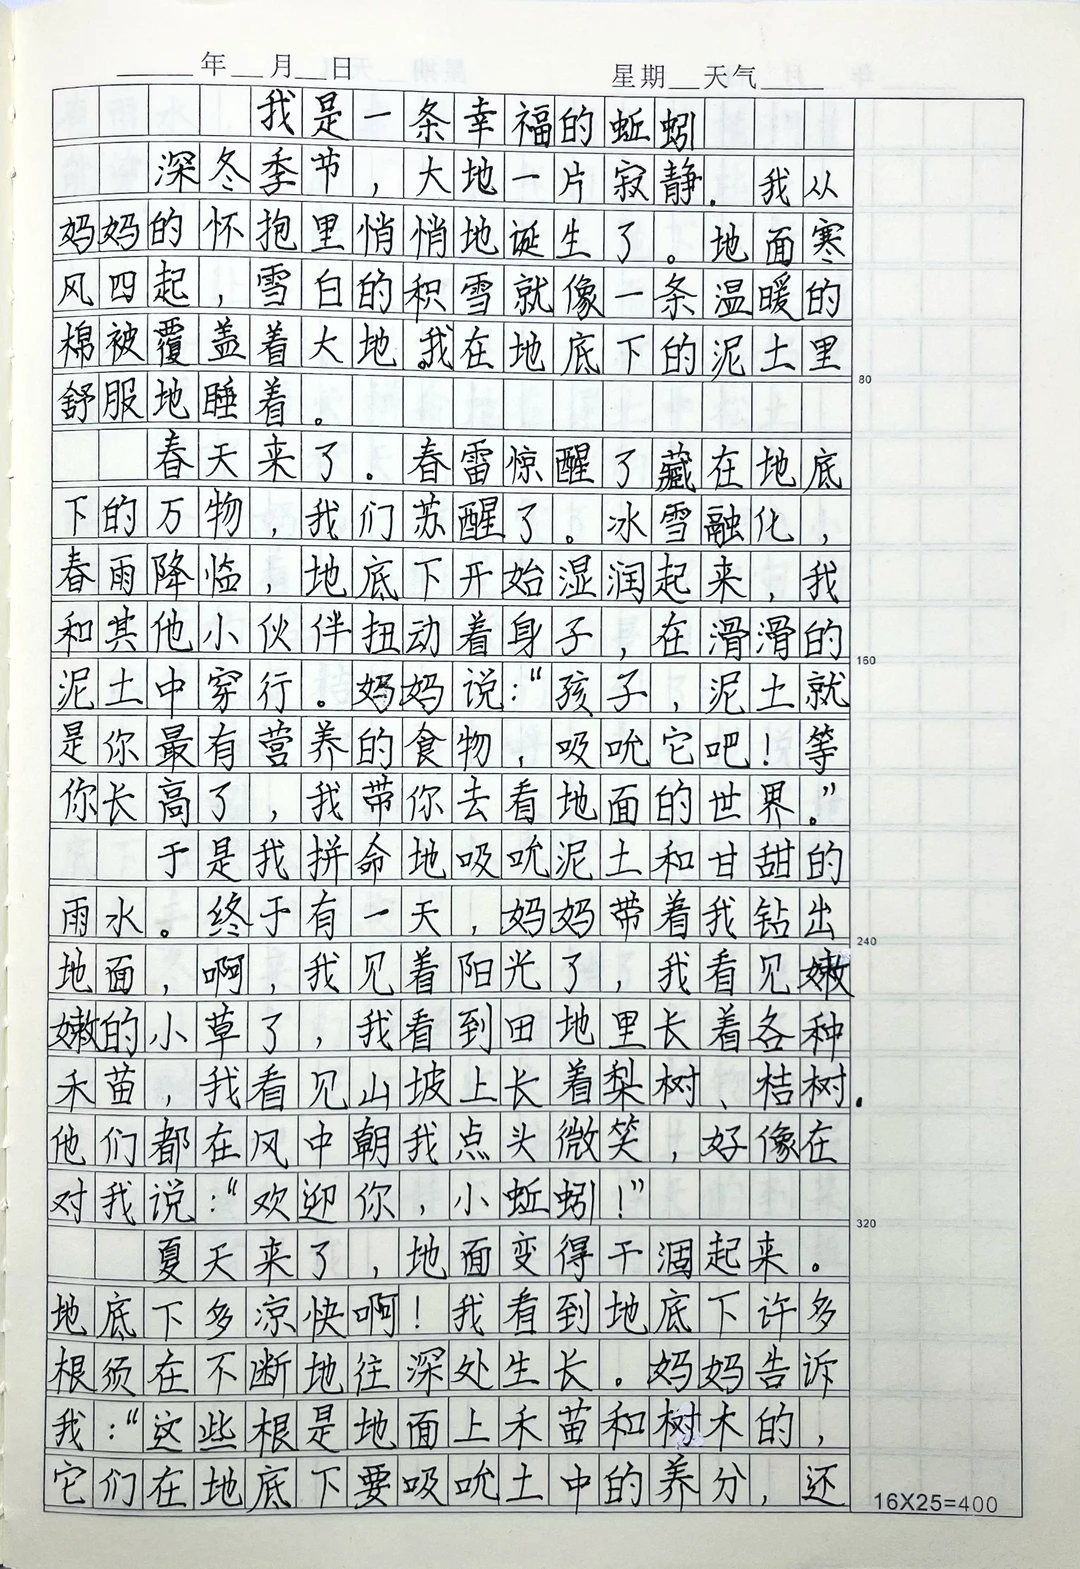 ____年__月__日 星期__天气____
我是一条幸福的蚯蚓
深冬季节，大地一片寂静．我从
妈妈的怀抱里悄悄地诞生了。地面寒
风四起，雪白的积雪就像一条温暖的
棉被覆盖着大地。我在地底下的泥土里
舒服地睡着。
80
春天来了。春雷惊醒了藏在地底
下的万物，我们苏醒了。冰雪融化，
春雨降临，地底下开始湿润起来，我
和其他小伙伴扭动着身子，在滑滑的
160
泥土中穿行。妈妈说：“孩子，泥土就
是你最有营养的食物，吸吮它吧！等
你长高了，我带你去看地面的世界。”
于是我拼命地吸吮泥土和甘甜的
雨水。终于有一天，妈妈带着我钻出
240
地面，啊，我见着阳光了，我看见嫩
嫩的小草了，我看到田地里长着各种
禾苗，我看见山坡上长着梨树、桔树．
他们都在风中朝我点头微笑，好像在
对我说：“欢迎你，小蚯蚓！”
320
夏天来了，地面变得干涸起来。
地底下多凉快啊！我看到地底下许多
根须在不断地往深处生长。妈妈告诉
我：“这些根是地面上禾苗和树木的，
它们在地底下要吸吮土中的养分，还
16X25=400